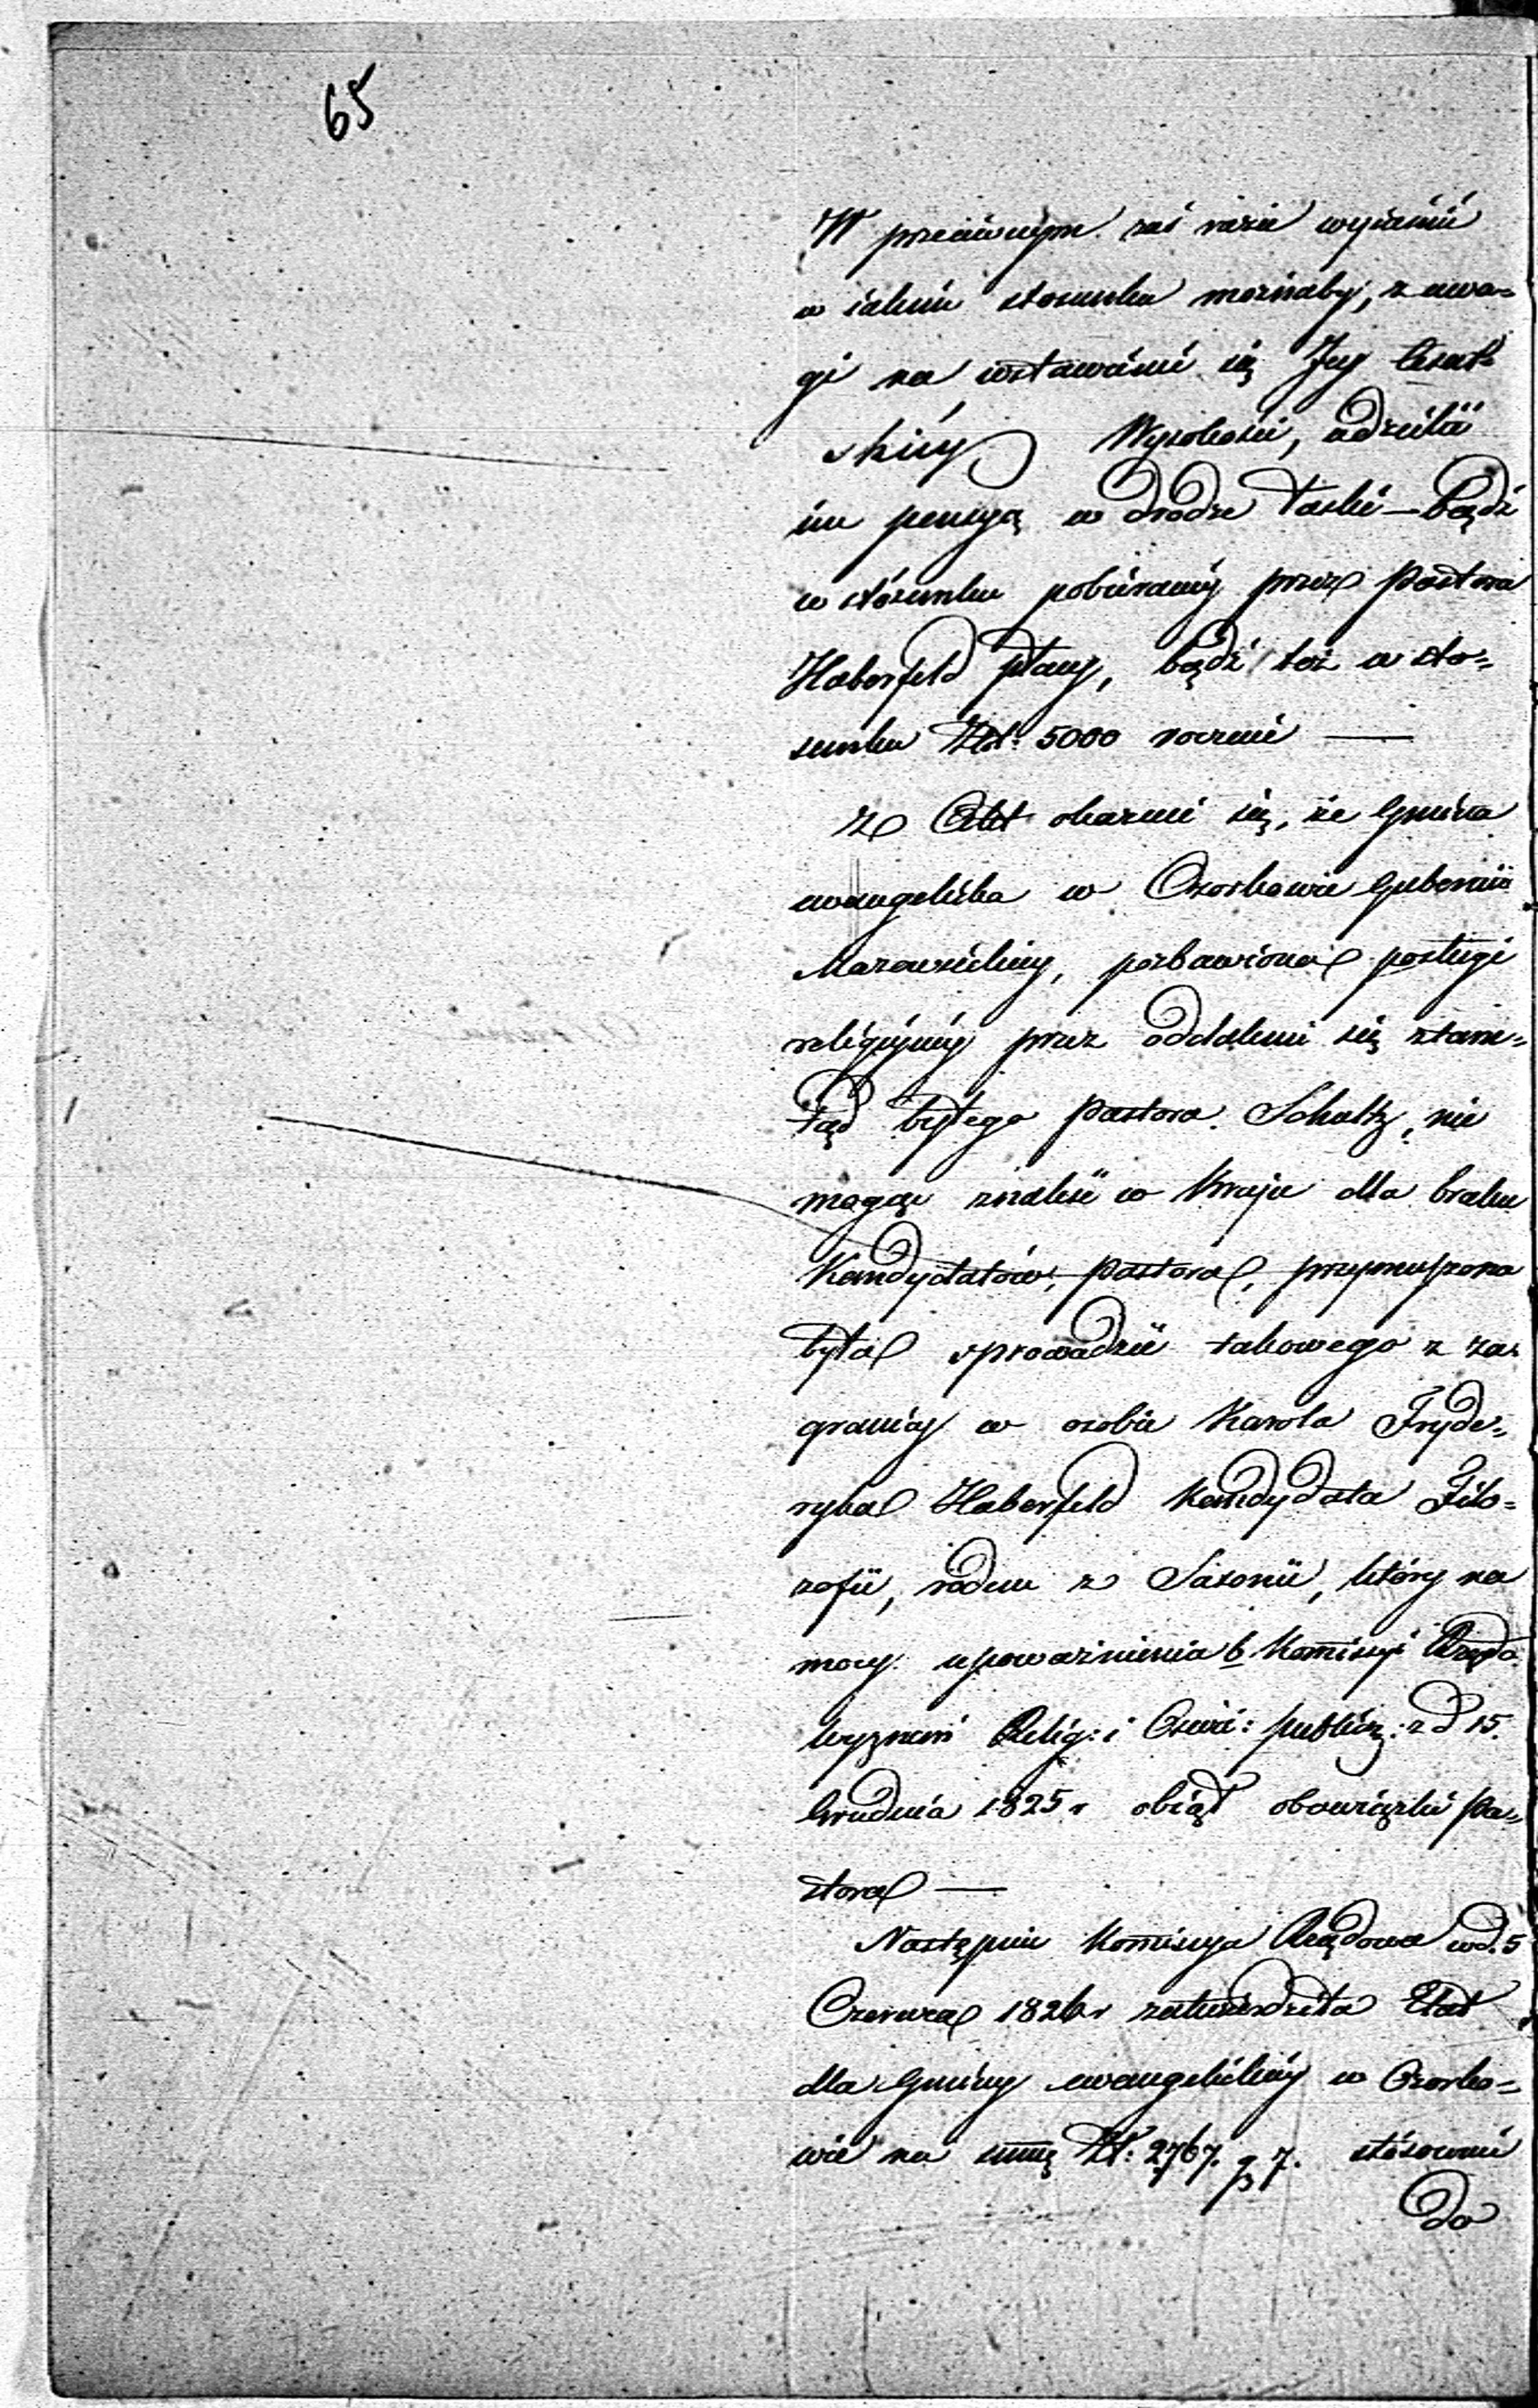 65
W przeciwnym zaś razie wyiaśnić
w iakim stosunku możnaby, z uwa-
gi na wstawienie się Jey Cesarz-
skiéy Wysokości, udzielić
im pensyą w drodze łaski – bądź
w stósunku pobieranéy przez Pastora
Haberfeld płacy, bądź też w sto-
sunku Złt: 5000 rocznie —
Z Akt okazuie się, że Gmina
ewangelicka w Ozorkowie Gubernii
Mazowieckiey, pozbawiona posługi
religijnéy przez oddalenie się ztam-
tąd byłego Pastora Scholtz, nie
mogąc znaleść w Kraju dla braku
Kandydatów, Pastora, przymuszona
była sprowadzić takowego z za-
granicy w osobie Karola Fryde-
ryka Haberfeld Kandydata Filo-
zofii, rodem z Saxonii, który na
mocy upoważnienia b. Komisyi Rządo:
Wyznań Relig: i Oświe: publicz: z d 15.
Grudnia 1825 r obiął obowiązki Pa-
stora —
Następnie Komisya Rządowa w d. 5
Czerwca 1826 r zatwierdziła Etat
dla Gminy ewangelickiéy w Ozorko-
wie na summę Zł: 2767. g 7. stósownie
do